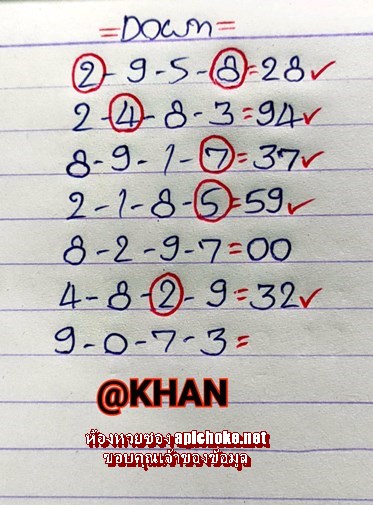 =Down=
2-9-5-8=28✓
2-4-8-3=94✓
8-9-1-7=37✓
2-1-8-5=59✓
8-2-9-7=00
4-8-2-9=32✓
9-0-7-3=
@KHAN
ห้องหวยซอง apichoke.net
ขอบคุณเจ้าของข้อมุล